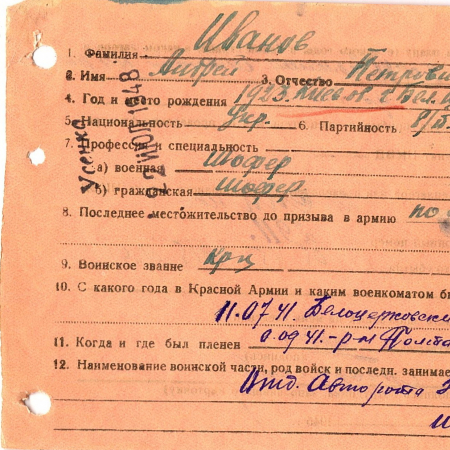 1. Фамилия Иванов
2. Имя Андрей 3. Отчество Петрови
4. Год и место рождения 1923. Киевс. г. Бел. Ц
5. Национальность Укр. 6. Партийность б/п
7. Профессия и специальность
а) военная Шофер
б) гражданская шофер
8. Последнее местожительство до призыва в армию по
9. Воинское звание кр-ц
10. С какого года в Красной Армии и каким военкоматом
11.07.41. Белоцерковски
11. Когда и где был пленен 0.09.41.-р-н Полта
12. Наименование воинской части, род войск и последн. занимае
Отд. Авторота
Усенко
ИЮЛ 1948